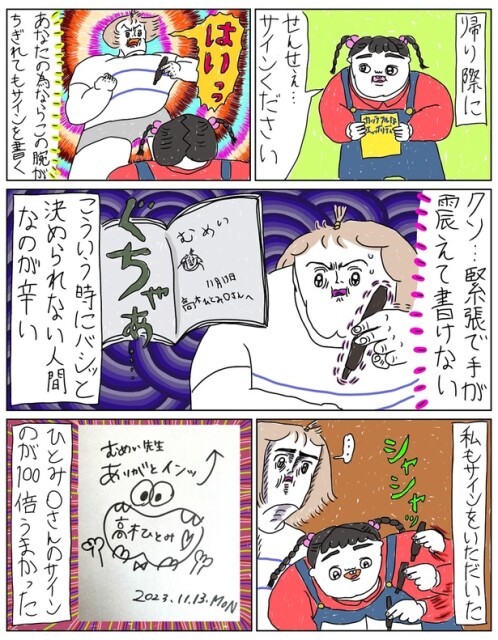 帰り際に
せんせぇ…
サインください
カップルなエッボリティ
はいっ
あなたの為ならこの腕が
ちぎれてもサインを書く
クソ…緊張で手が
震えて書けない
むめい
11月13日
高木ひとみ〇さんへ
ぐちゃあ
こういう時にバシッと
決められない人間
なのが辛い
私もサインをいただいた
…
シャシャッ
むめい先生
ありがとインッ
高木ひとみ
2023.11.13.MON
ひとみ〇さんのサイン
のが100倍うまかった